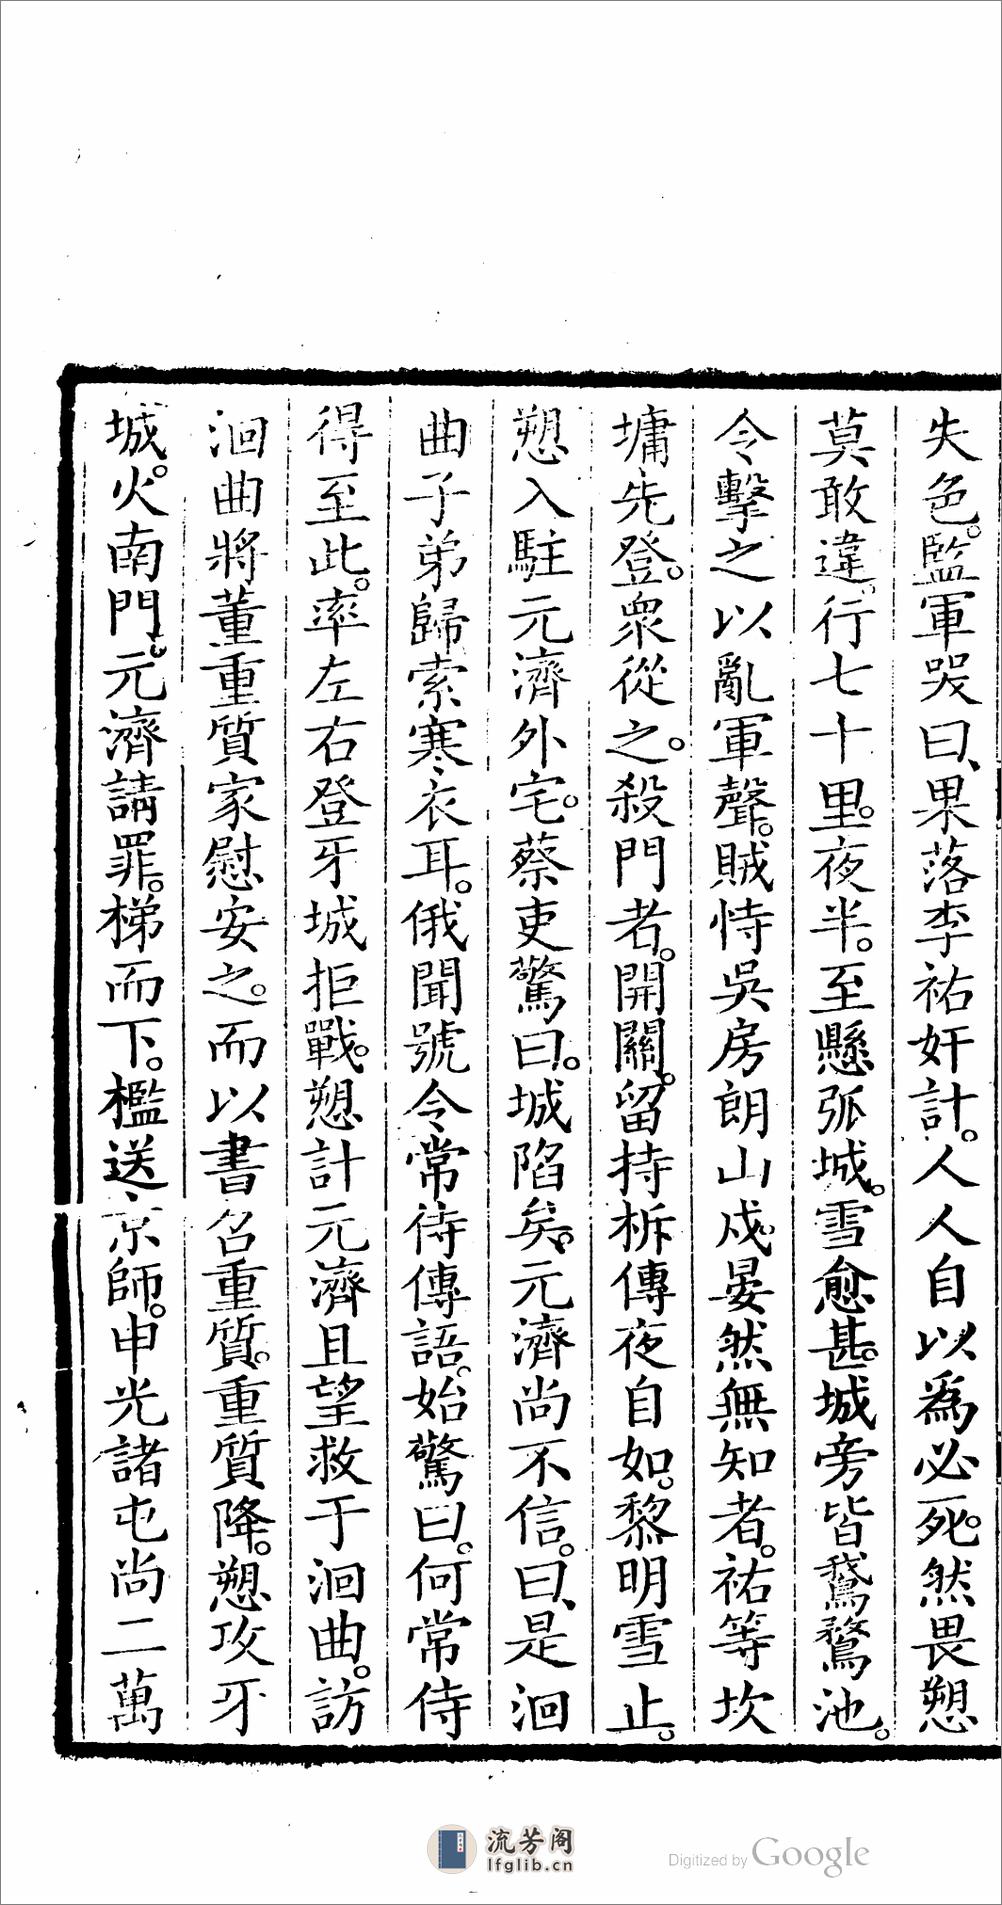 失色。監軍哭曰、果落李祐奸計。人人自以爲必死。然畏愬
莫敢違。行七十里。夜半。至懸弧城。雪愈甚。城旁皆鵞鶩池。
令擊之以亂軍聲。賊恃吳房朗山戍。晏然無知者。祐等坎
墉先登。衆從之。殺門者。開關。留持柝傳夜自如。黎明雪止。
愬入駐元濟外宅。蔡吏驚曰。城陷矣。元濟尚不信。曰、是洄
曲子弟歸索寒衣耳。俄聞號令常侍傳語。始驚曰。何常侍
得至此。率左右登牙城拒戰。愬計元濟且望救于洄曲。訪
洄曲將董重質家慰安之。而以書召重質。重質降。愬攻牙
城。火南門。元濟請罪。梯而下。檻送京師。申光諸屯尚二萬
流芳阁
lfglib.cn
Digitized by Google